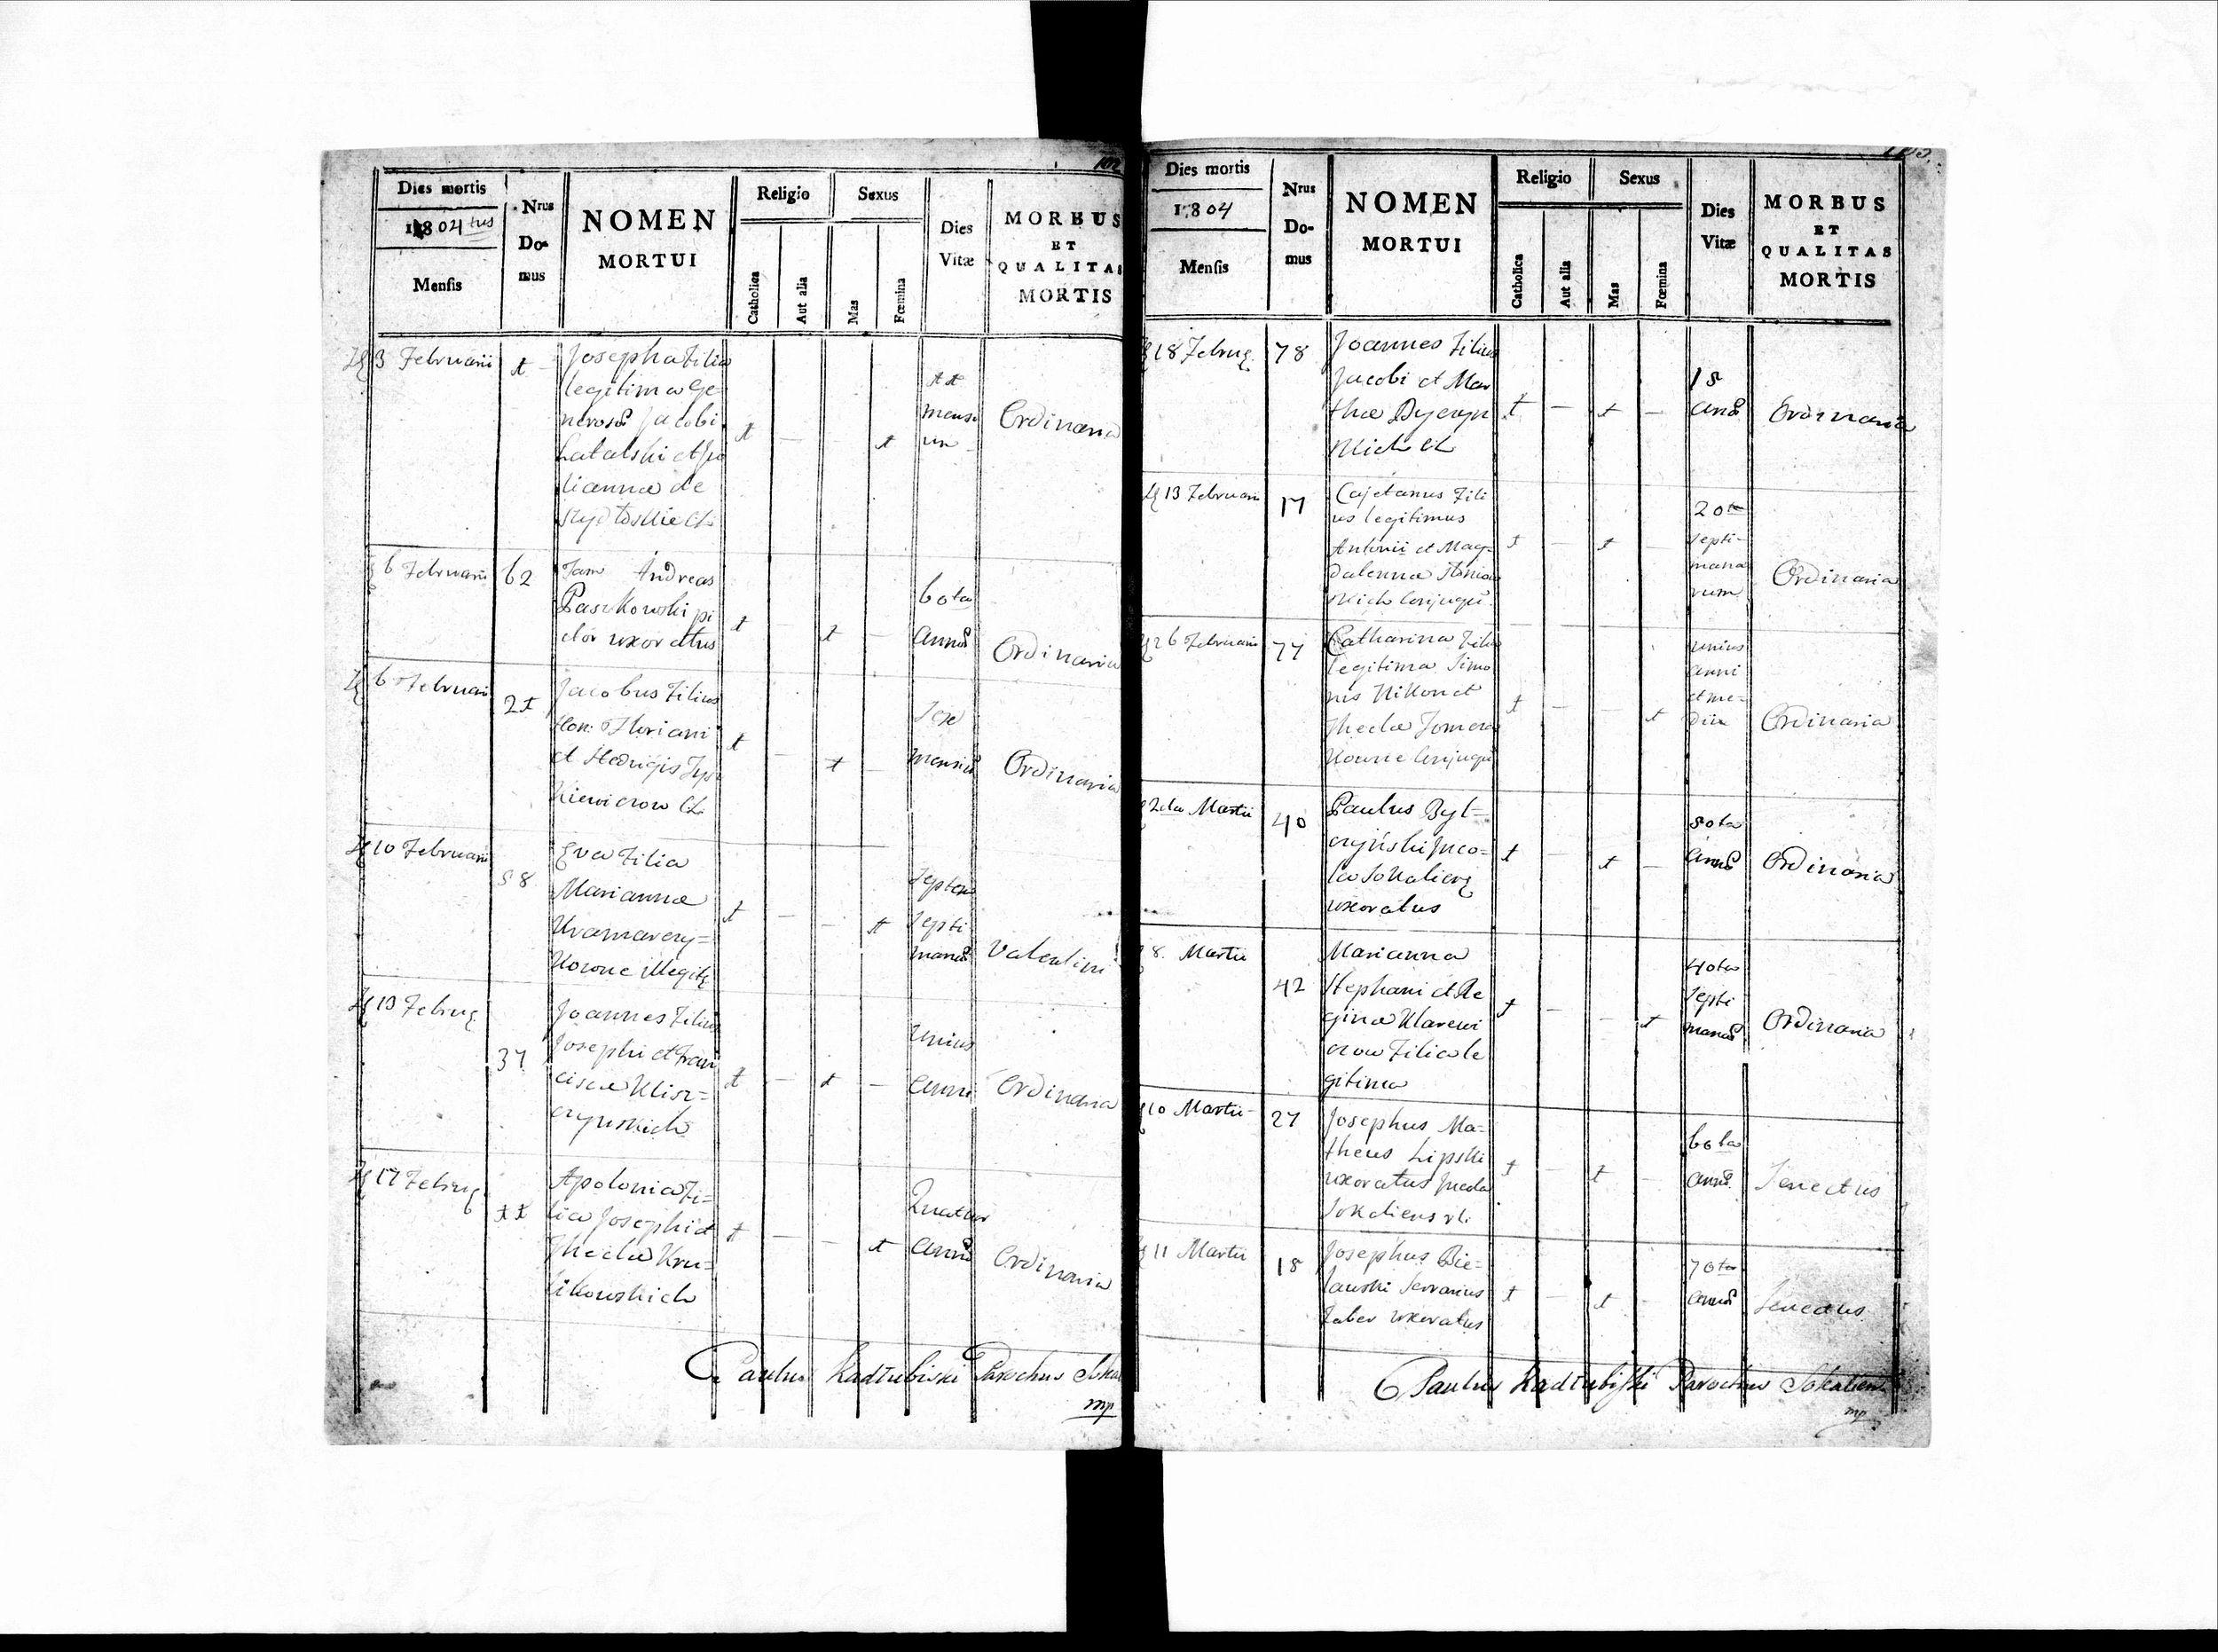 Dies mortis
1804 tus
Mensis
Nrus
Do-
mus
NOMEN
MORTUI
Religio
Sexus
Catholica
Aut alia
Mas
Fœmina
Dies
Vitæ
MORBUS
ET
QUALITAS
MORTIS
3 Februarii
Josepha Filia
legitima Ge
nerosor Jacobi
et Ju
lianna de
mensi
um
Ordinaria
6 Februarii
62
Andreas
Paszkowski pi
ctor uxoratus
60ta
annor
Ordinaria
6 Februarii
Jacobus Filius
Hon: Floriani
et Hedvigis
kiewiczow CL
Sex
mensiu
Ordinaria
10 Februarii
58
Eva Filia
Marianna
Kramarczy=
kowne illegit
Septem
septi
manar
Valentini
13 Februa
37
Joannes Filius
Josephi et Fran
cisca Klisz=
czynskich
Unius
anni
Ordinaria
17 Februa
Apolonia Fi=
lia Josephi et
Thecla Kru=
likowskich
Quatuor
annor
Ordinaria
Paulus Kadłubiski Parochus Skal
mp
Dies mortis
1804
Mensis
Nrus
Do-
mus
NOMEN
MORTUI
Religio
Sexus
Catholica
Aut alia
Mas
Fœmina
Dies
Vitæ
MORBUS
ET
QUALITAS
MORTIS
18 Februa
78
Joannes Filius
Jacobi et Mar
tha
skich CL
18
anor
Ordinaria
13 Februarii
17
Cajetanus Fili
us legitimus
Antonii et Mag=
dalenna
skich Conjugu
20
septi-
mana
rum
Ordinaria
26 Februarii
77
Catharina Filia
legitima Simo
nis Nikon et
Thecla
kowne Conjugu
unius
anni
et me-
dii
Ordinaria
2da Martii
40
Paulus Byl=
czyński Inco=
la Sokaliens
uxoratus
80ta
annor
Ordinaria
8. Martii
42
Marianna
Stephani et Re
gina Klarewi
czow Filia le
gitima
40ta
septi
manar
Ordinaria
10 Martii
27
Josephus Ma=
theus Lipski
uxoratus Incola
Sokaliensis
60ta
annor
Senectus
11 Martii
18
Josephus Bie=
lawski Serrarius
Faber uxoratus
70ta
annor
Senectus
Paulus Kadłubiski Parochus Sokalien
mp